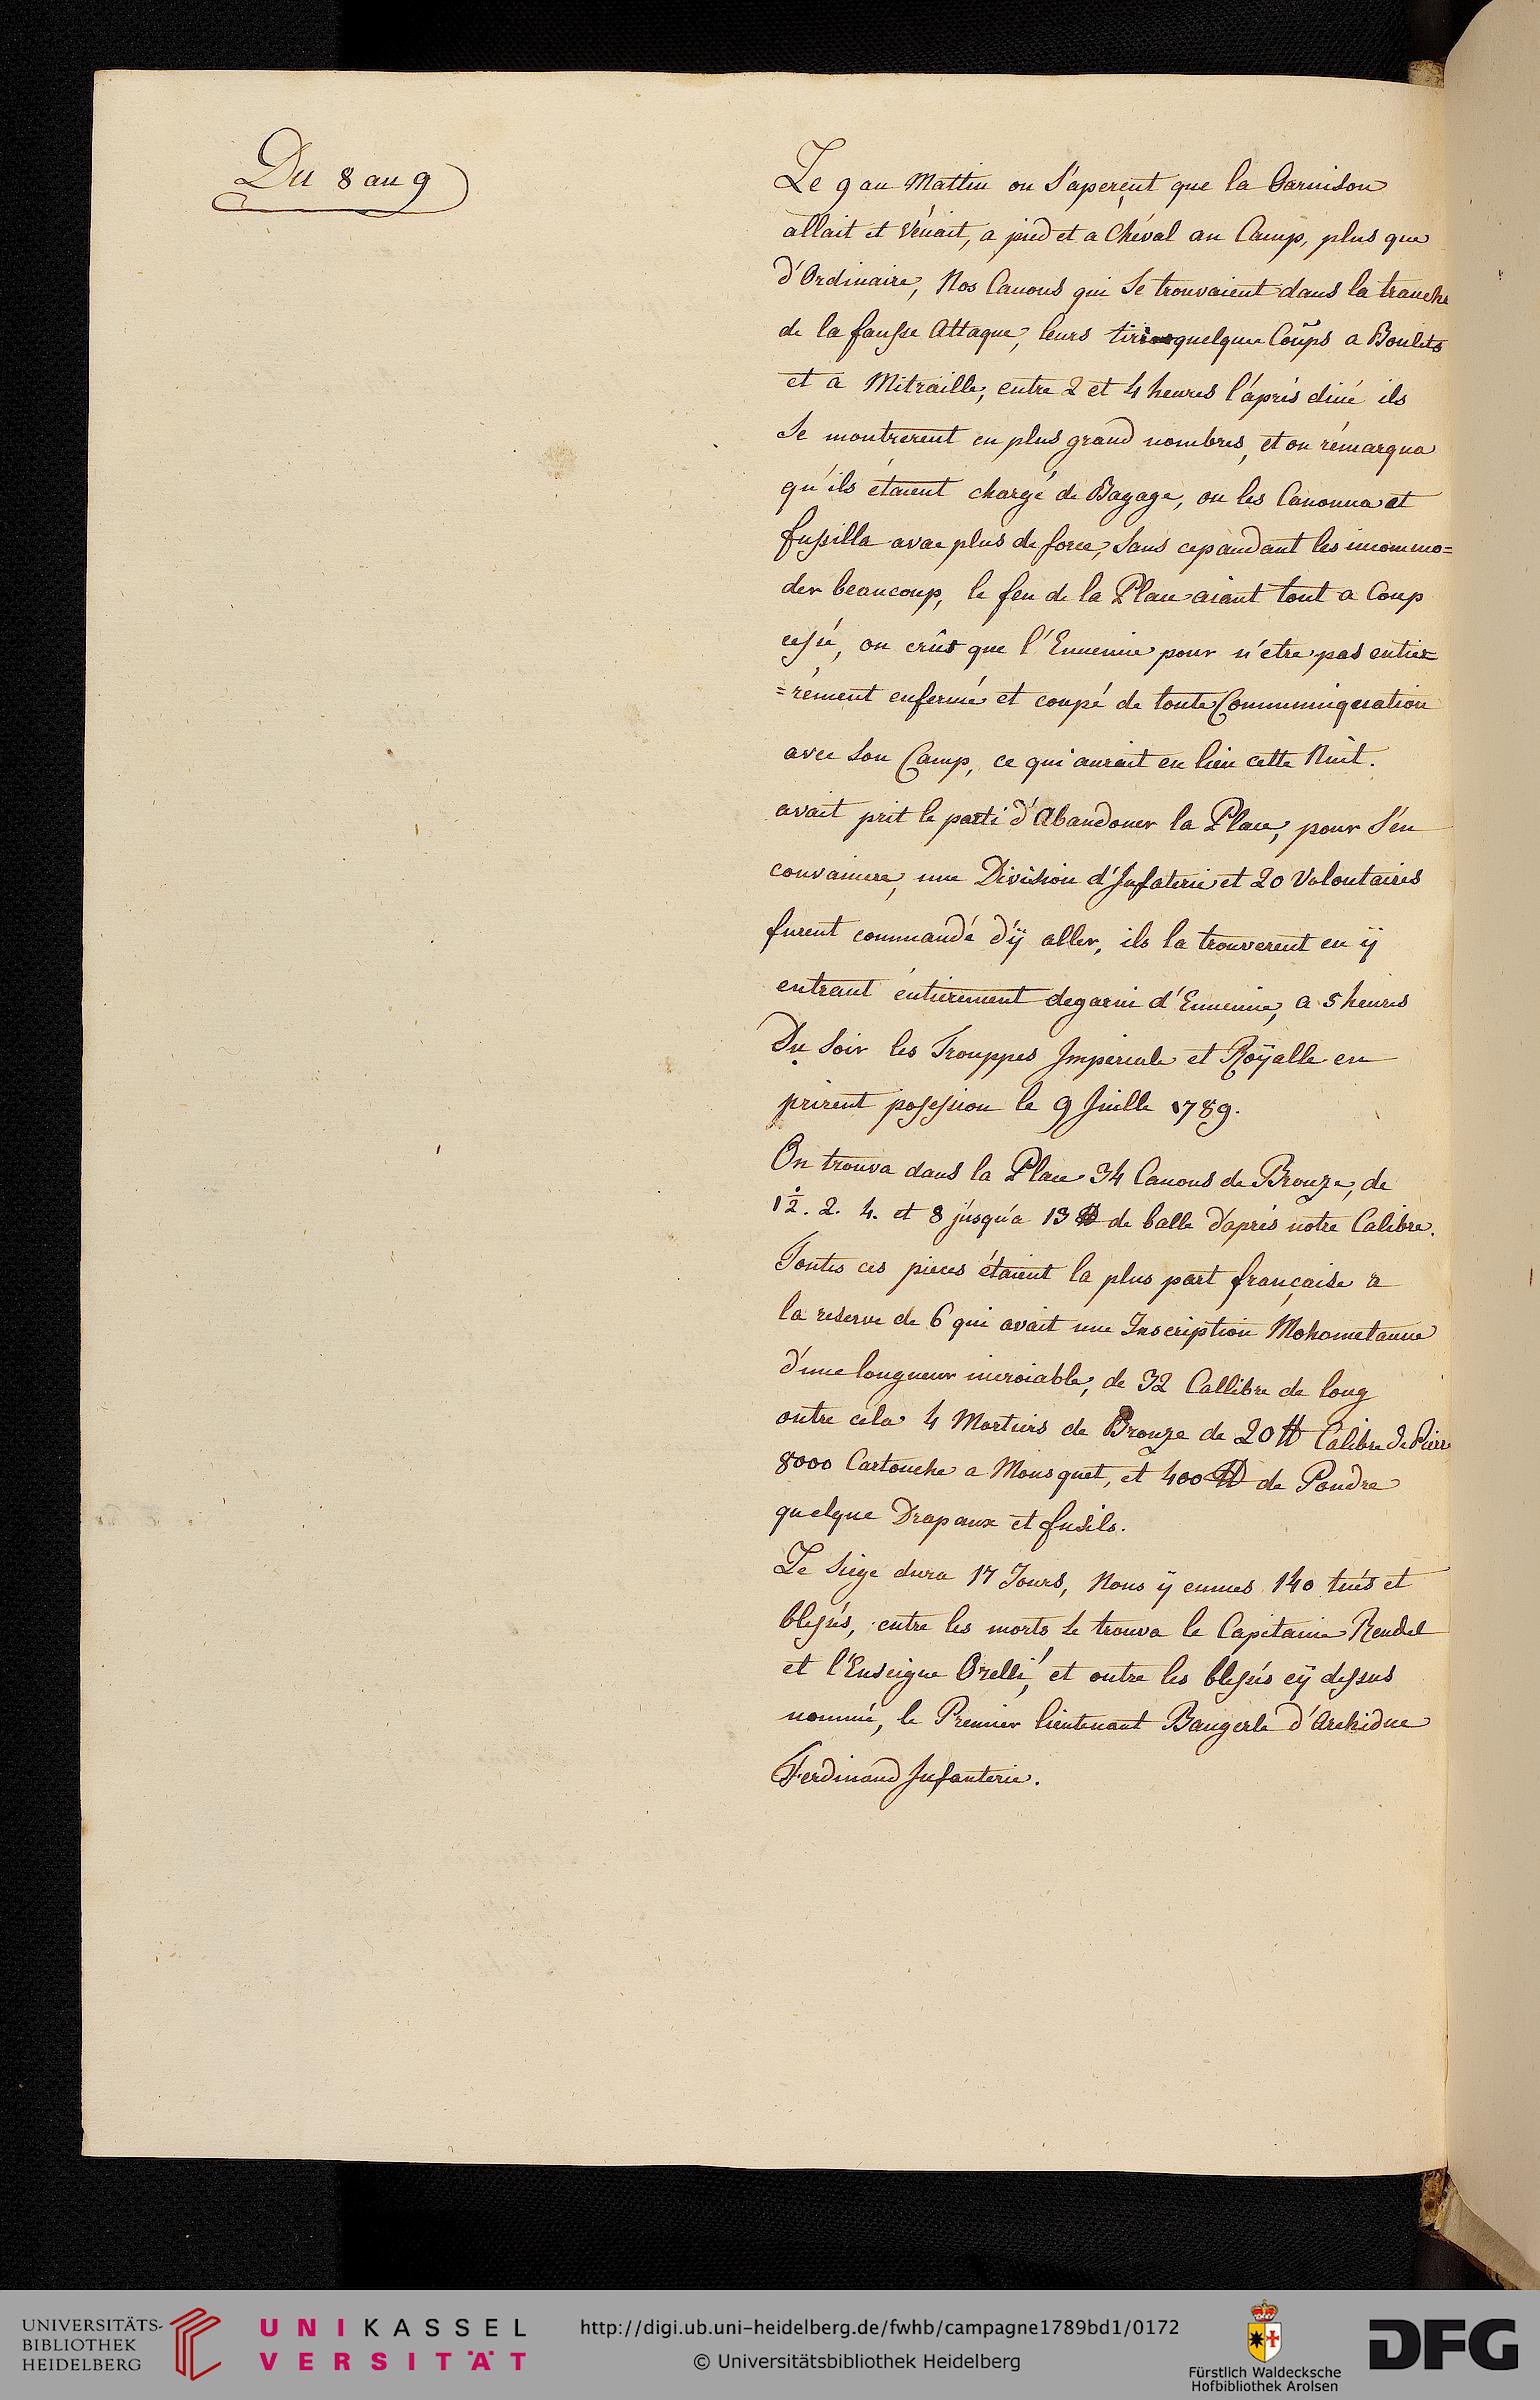 Du 8 au 9
Le 9 au Mattin on S'aperçut que la Garnison
allait et vénait, a pied et a Chéval au Camp, plus que
d'Ordinaire, Nos Canons qui Se trouvaient dans la tranche
de la fausse Attaque, leurs quelque Coups a Boulets
et a Mitraille, entre 2 et 4 heures l'áprés diné ils
Se montrerent en plus grand nombres, et on rémarqua
qu'ils étaient chargé de Bagage, on les Canonna et
fussilla avae plus de force, Sans cepandant les incommo=
der beaucoup, le feu de la Place aiant tout a Coup
cessé, on crût que l'Ennemie pour n'etre pas entie=
=rément enfermé et coupé de toute Communiqcation
avec Son Camp, ce qui aurait eu lieu cette Nuit.
avait prit le parti d'Abandoner la Place, pour S'en
convaincre, une Division d'Infaterie et 20 Volontaires
furent commandé d'ÿ aller, ils la trouverent en ÿ
entrant éntierement degarni d'Ennemie, a 5 heures
Du Soir les Trouppes Imperiale et Roÿalle en
prirent posession le 9 Juille 1789.
On trouva dans la Place 34 Canons de Bronze, de
1½. 2. 4. et 8 júsqu'a 13 ℔ de balle d'aprés notre Calibre.
Toutes ces pieces étaient la plus part française a
la reserve de 6 qui avait une Inscription Mohometanne
d'une longueur incroiable, de 32 Callibre de long
outre cela 4 Mortiers de Bronze de 20 ℔ Calibre de Pierr
8000 Cartouche a Mousquet, et 400 ℔ de Poudre
quelque Drapaux et fusils.
Le Siege dura 17 Jours, Nous ÿ eumes 140 tués et
blessés, entre les morts Se trouva le Capitaine Rendel
et l'Enseigne Orelli, et outre les blessés cÿ dessus
nommé, le Premier lieutenant Baugerle d'Archiduc
Ferdinand Infanterie.
UNIVERSITÄTS-
BIBLIOTHEK
HEIDELBERG
UNIKASSEL
VERSITÄT
http://digi.ub.uni-heidelberg.de/fwhb/campagne1789bd1/0172
© Universitätsbibliothek Heidelberg
Fürstlich Waldecksche
Hofbibliothek Arolsen
DFG